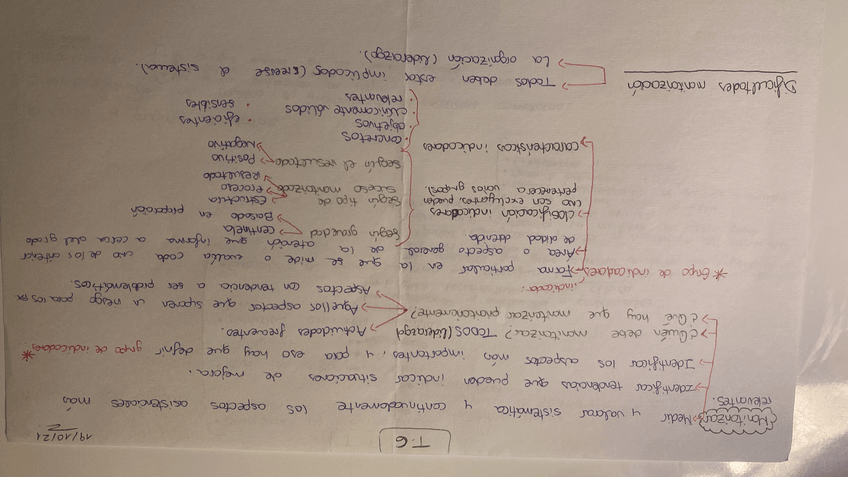 T-6
19/10/21
Monitorizar → Medir y valorar sistemática y continuadamente los aspectos asistenciales más
relevantes.
→ Identificar tendencias que puedan indicar situaciones de mejora.
→ Identificar los aspectos más importantes, y para eso hay que definir grupo de indicadores *
→ ¿Quién debe monitorizar? TODOS (liderazgo)
→ ¿Qué hay que monitorizar prioritariamente?
→ Actividades frecuentes.
→ Aquellos aspectos que suponen un riesgo para los px
→ Aspectos con tendencia a ser problemáticos.
* Grupo de indicadores
indicador:
→ Forma particular en la que se mide o evalúa cada uno de los anterior
→ Área o aspecto general de la atención que informa a cerca del grado
de calidad obtenida
→ clasificación indicadores
(no son excluyentes, pueden
pertenecer a varios grupos)
según gravedad
→ centinela
→ Basado en proporción
según tipo de
suceso monitorizado
→ Estructura
→ Proceso
→ Resultado
según el resultado
→ Positivo
→ Negativo
→ características indicadores
· concretos
· objetivos
· clínicamente válidos
· relevantes
· eficientes
· sensibles
Dificultades monitorización
→ Todos deben estar implicados (creerse el sistema).
→ La organización (liderazgo).